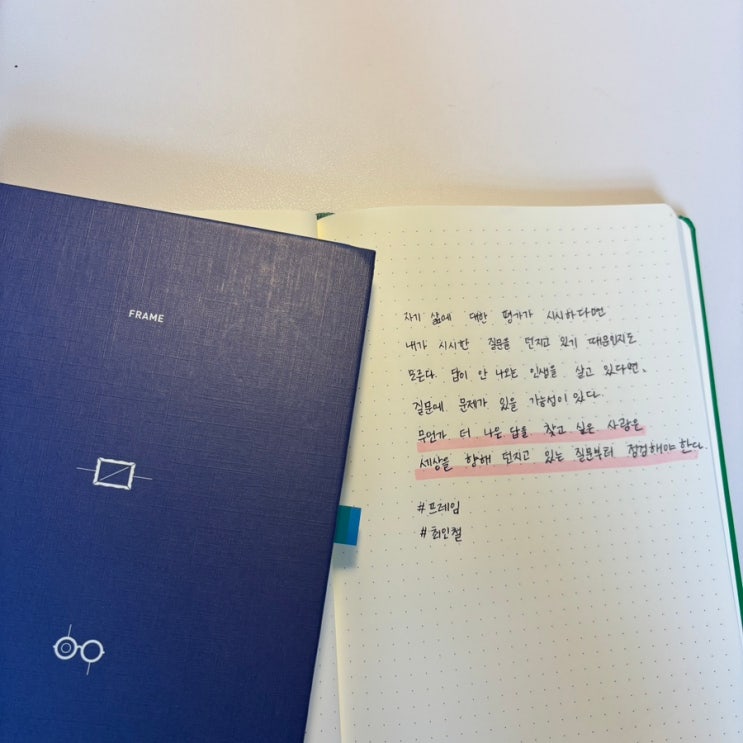 FRAME
자기 삶에 대한 평가가 시시하다면
내가 시시한 질문을 던지고 있기 때문일지도
모른다. 답이 안 나오는 인생을 살고 있다면,
질문에 문제가 있을 가능성이 있다.
무언가 더 나은 답을 찾고 싶은 사람은
세상을 향해 던지고 있는 질문부터 점검해야 한다.
#프레임
#최인철